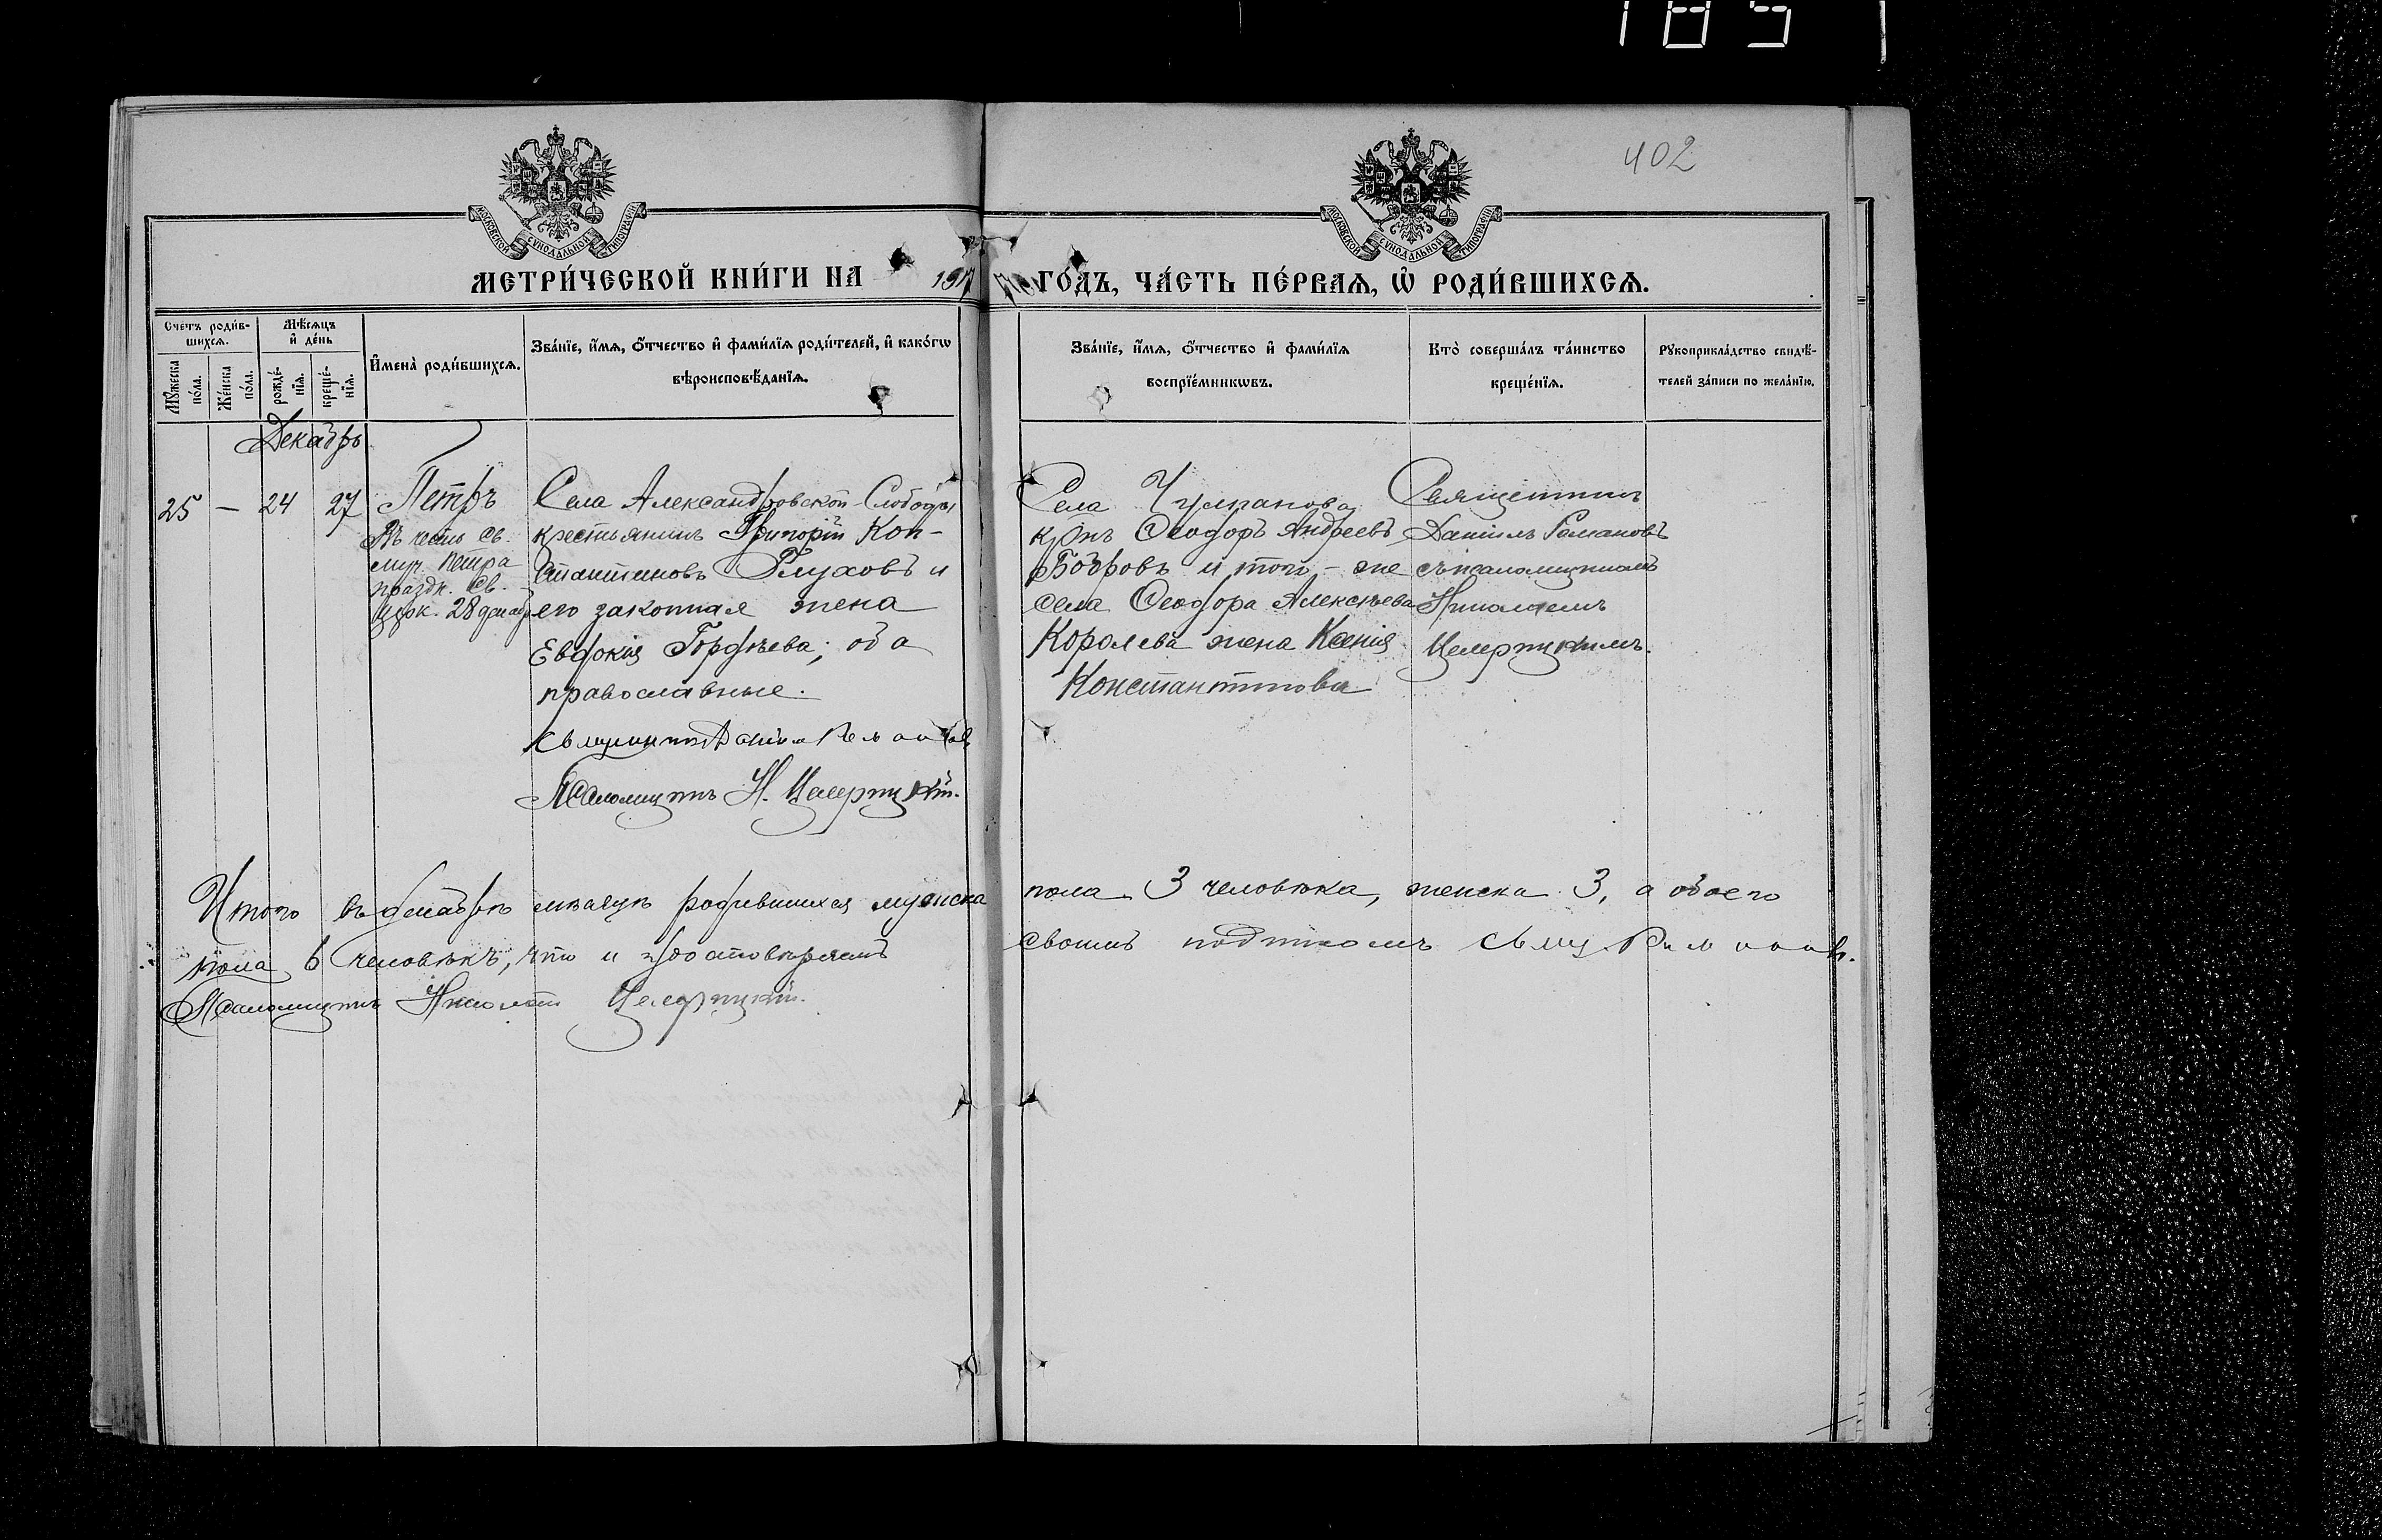 1851
402
МОСКОВСКОЙ СѴНОДАЛЬНОЙ ТИПОГРАФІИ
МОСКОВСКОЙ СѴНОДАЛЬНОЙ ТИПОГРАФІИ
МЕТРИ́ЧЕСКОЙ КНИ́ГИ НА 191 ГО́ДЪ, ЧА́СТЬ ПЕ́РВАЯ, Ѡ҆ РОДИ́ВШИХСЯ.
Сче́тъ роди́в-
шихся.
Мꙋ́жеска по́ла.
Же́нска по́ла.
Мѣ́сяцъ и҆ де́нь
рожде́-нїя.
креще́-нїя.
И҆мена̀ роди́вшихся.
Зва́нїе, и҆́мя, ѻ҆́тчество и҆ фами́лїя роди́телей, и҆ како́гѡ
вѣроисповѣ́данїя.
Зва́нїе, и҆́мя, ѻ҆́тчество и҆ фами́лїя
воспрїе́мникѡвъ.
Кто̀ соверша́лъ та́инство
креще́нїя.
Рꙋкоприкла́дство свидѣ́-
телей за́писи по жела́нїю.
Декабрь
25 — 24 27
Петръ
Въ честь Св.
муч. Петра
праздн. Св.
Церк. 28 декабр
Села Александровской Слободы
крестьянинъ Григорій Кон-
стантиновъ Глуховъ и
его законная жена
Евдокія Гордѣева; оба
православные.
Священникъ Даніилъ Романовъ
Псаломщикъ Н. Цемерицкій.
Села Чулпанова
крнъ Ѳеодоръ Андреевъ
Бобровъ и того-же
села Ѳеодора Алексѣева
Королева жена Ксенія
Константинова
Священникъ
Даніилъ Романовъ
съ псаломщикомъ
Николаемъ
Цемерицкимъ.
Итого въ декабрѣ мѣсяцѣ родившихся мужска пола 3 человѣка, женска 3, а обоего
пола 6 человѣкъ, что и удостовѣряемъ своимъ подписомъ Свящ. Романовъ.
Псаломщикъ Николай Цемерицкій.